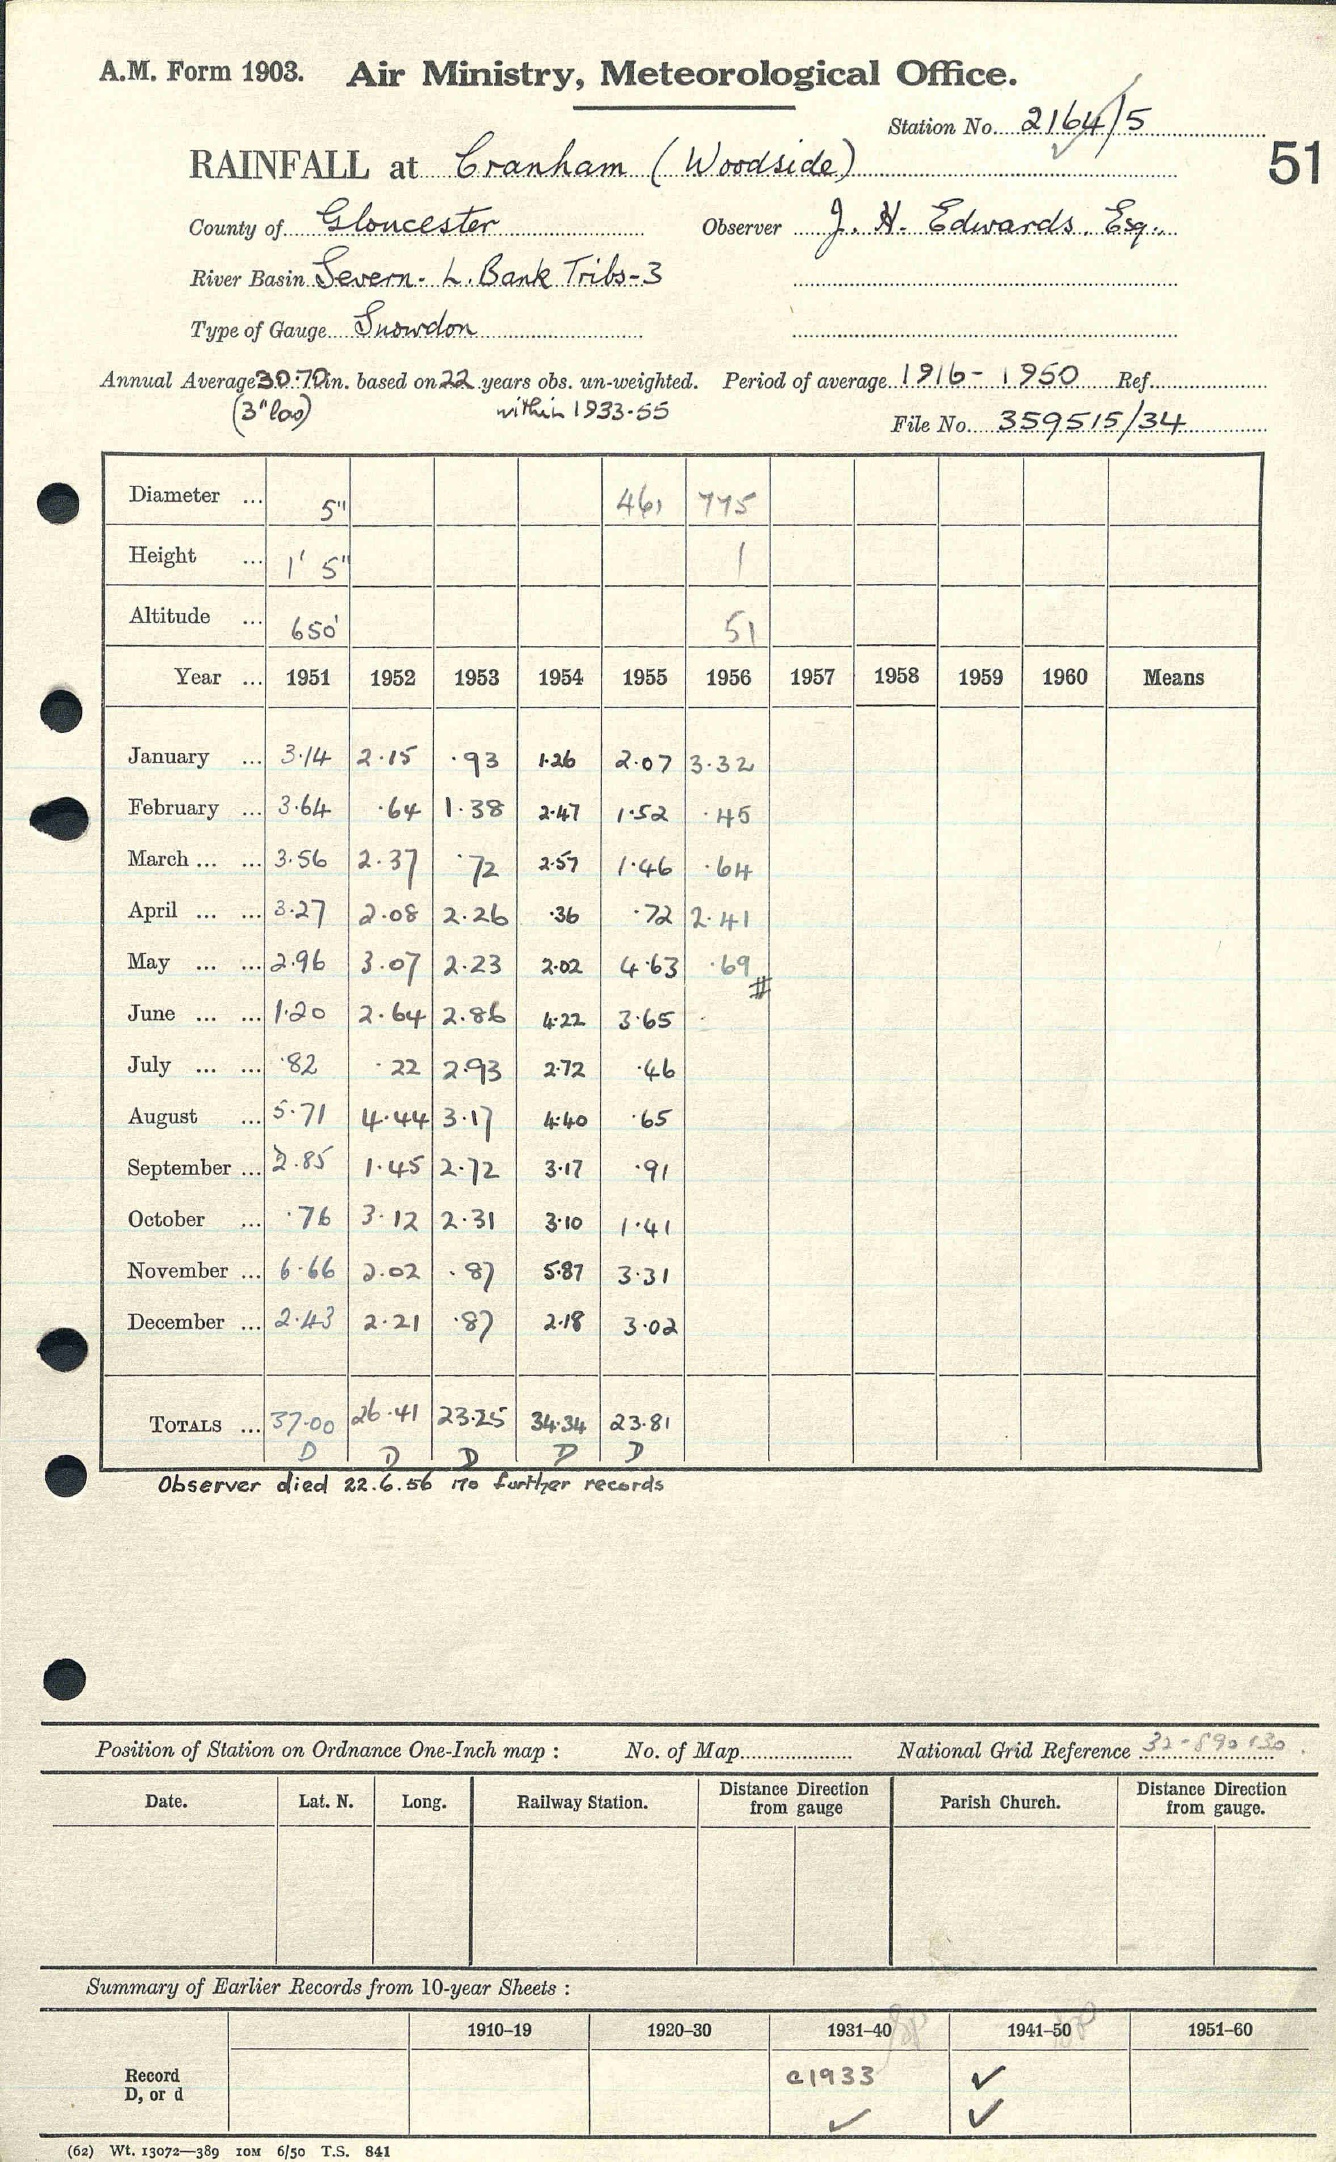 A.M. Form 1903. Air Ministry, Meteorological Office.
Station No. 2164/5
RAINFALL at Cranham (Woodside)
51
County of Gloucester Observer J. H. Edwards. Esq.
River Basin Severn - L. Bank Tribs - 3
Type of Gauge Snowdon
Annual Average 30.70 in. based on 22 years obs. un-weighted. Period of average 1916 - 1950 Ref.
(3" lao) within 1933-55
File No. 359515/34
Diameter ... 5" 461 775
Height ... 1' 5" 1
Altitude ... 650' 51
Year ... 1951 1952 1953 1954 1955 1956 1957 1958 1959 1960 Means
January ... 3.14 2.15 .93 1.26 2.07 3.32
February ... 3.64 .64 1.38 2.47 1.52 .45
March ... ... 3.56 2.37 .72 2.57 1.46 .64
April ... ... 3.27 2.08 2.26 .36 .72 2.41
May ... ... 2.96 3.07 2.23 2.02 4.63 .69 #
June ... ... 1.20 2.64 2.86 4.22 3.65
July ... ... .82 .22 2.93 2.72 .46
August ... 5.71 4.44 3.17 4.40 .65
September ... 2.85 1.45 2.72 3.17 .91
October ... .76 3.12 2.31 3.10 1.41
November ... 6.66 2.02 .87 5.87 3.31
December ... 2.43 2.21 .87 2.18 3.02
TOTALS ... 37.00 26.41 23.25 34.34 23.81
D D D D D
Observer died 22.6.56 no further records
Position of Station on Ordnance One-Inch map : No. of Map National Grid Reference 32-890130
Date. Lat. N. Long. Railway Station. Distance Direction from gauge Parish Church. Distance Direction from gauge.
Summary of Earlier Records from 10-year Sheets :
1910–19 1920–30 1931–40 1941–50 1951–60
Record c1933 ✓
D, or d ✓ ✓
(62) Wt. 13072—389 10M 6/50 T.S. 841